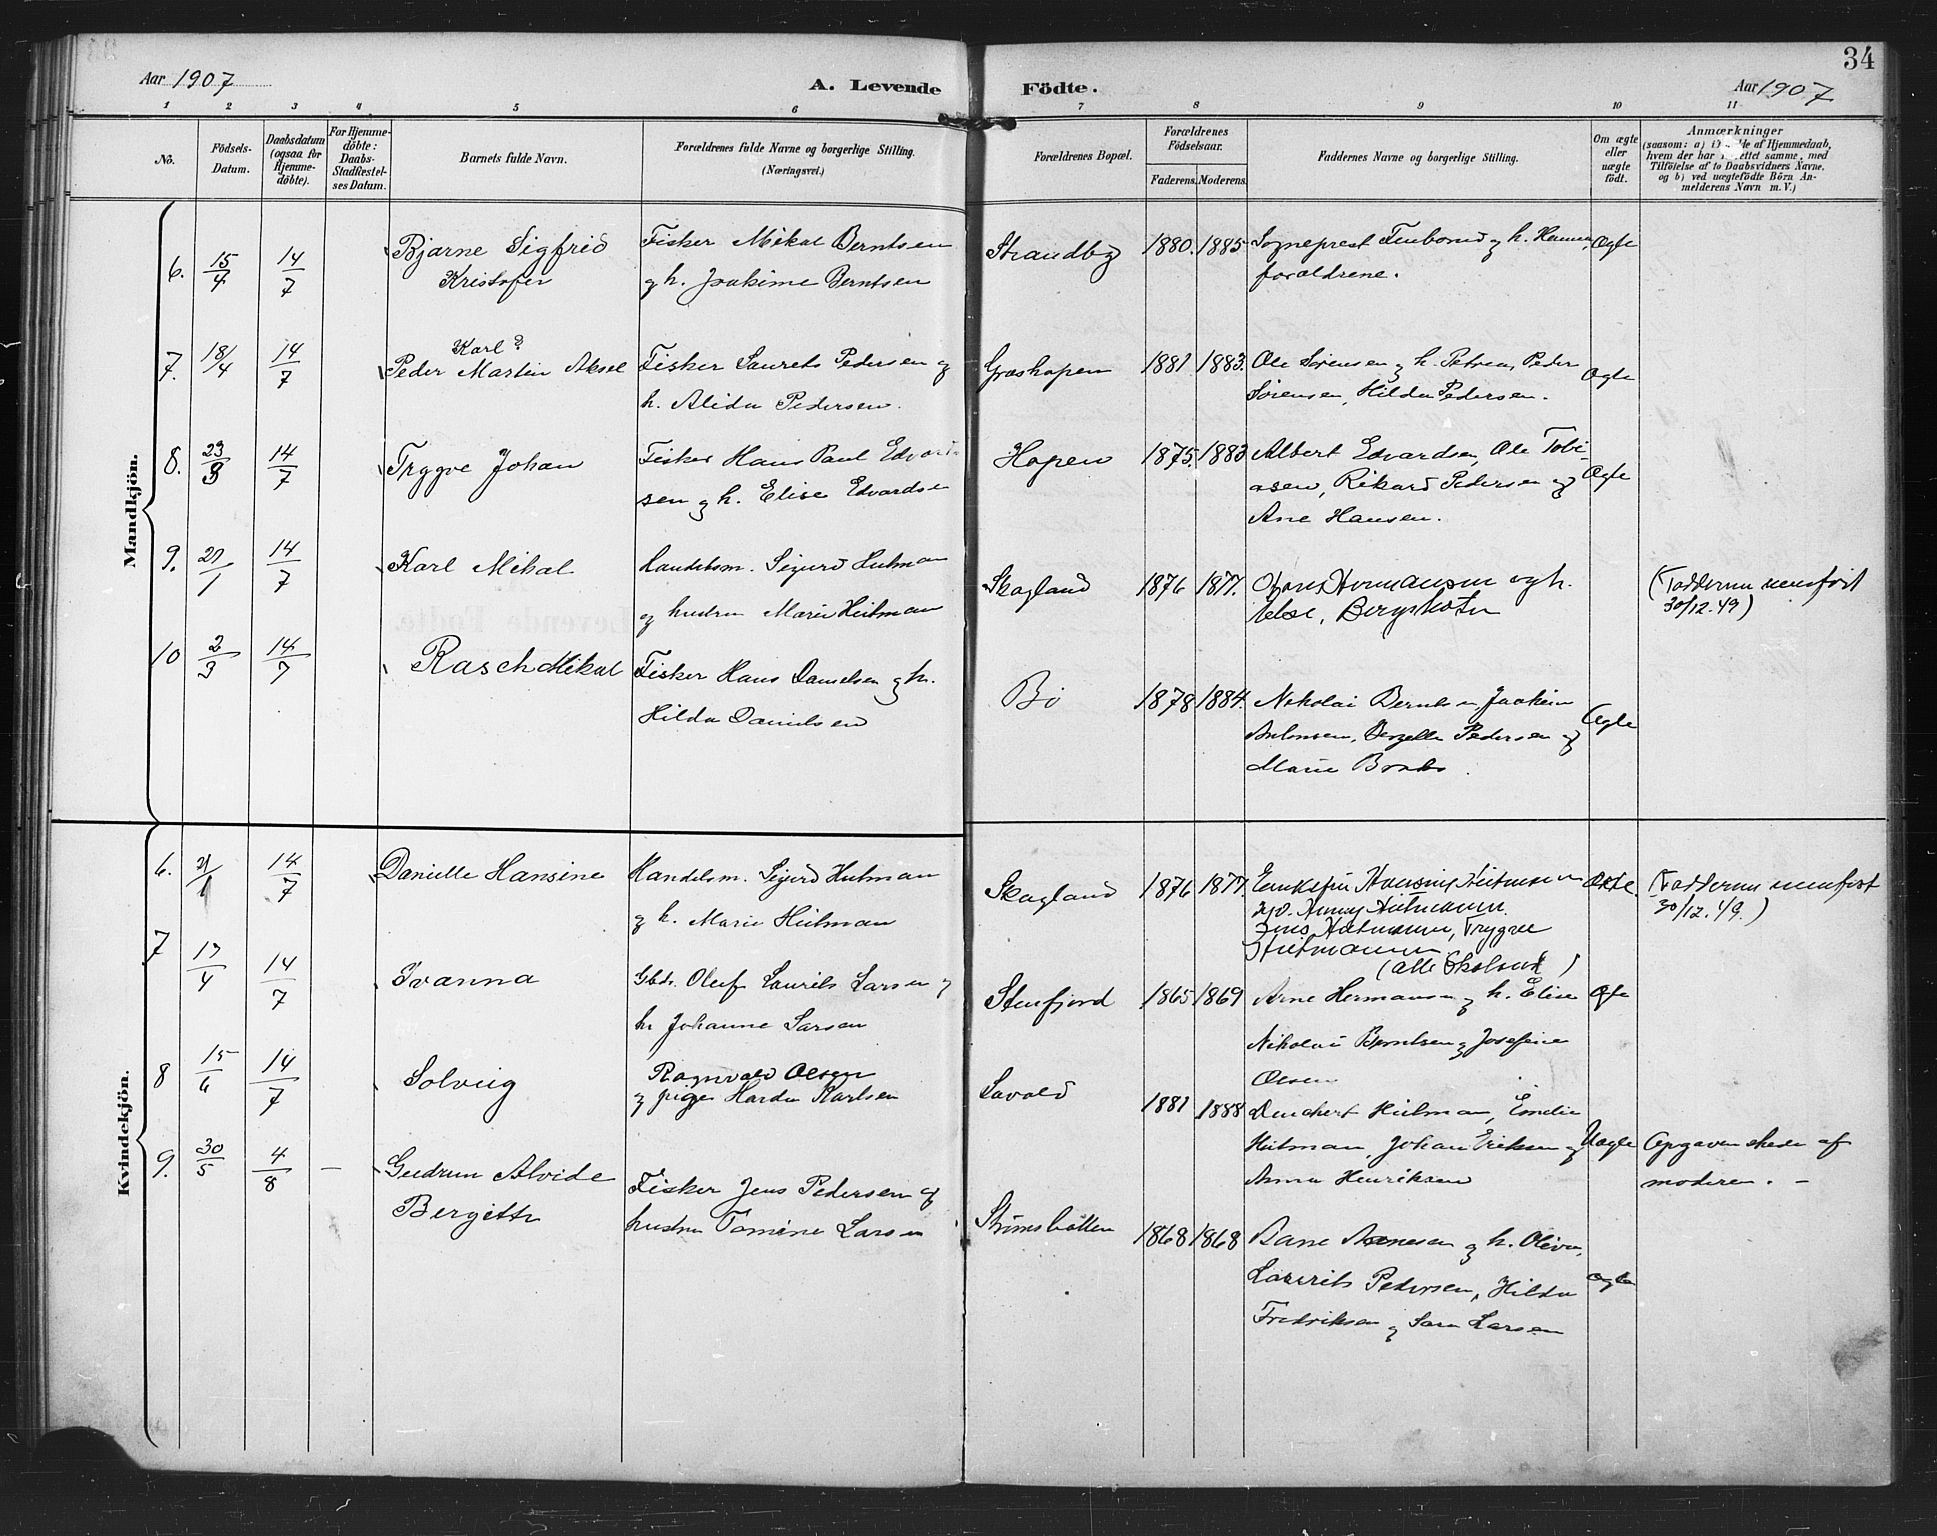 Aar 1907
A. Levende
Födte.
Aar 1907
34
1 2 3 4 5 6 7 8 9 10 11
No.
Födsels-
Datum.
Daabsdatum
(ogsaa for
Hjemme-
døbte).
For Hjemme-
döbte:
Daabs-
Stadfæstel-
ses Datum.
Barnets fulde Navn.
Forældrenes fulde Navne og borgerlige Stilling.
(Næringsvei.)
Forældrenes Bopæl.
Forældrenes
Födselsaar.
Faderens. Moderens.
Faddernes Navne og borgerlige Stilling.
Om ægte
eller
uægte
födt.
Anmærkninger
(saasom: a) af Hjemmedaab,
hvem der har rettet samme, med
Tilföielse af to Daabsvidners Navne,
og b) ved uægtefödte Börn An-
melderens Navn m. V.)
Mandkjön.
6. 15/4 14/7
Bjarne Sigfrid
Kristofer
Fisker Mikal Berntsen
og h. Joakime Berntsen
Strandby
1880. 1885
Sogneprest og h.
forældrene.
Ægte
7. 18/4 14/7
Karl?
Peder Martin Aksel
Fisker Laurets Pedersen og
h. Alida Pedersen.
Græshopen
1881 1883.
Ole Sørensen og h. Petrea, Peder
Sørensen, Hilda Pedersen.
Ægte
8. 23/3 14/7
Trygve Johan
Fisker Hans Paul Edvard-
sen og h. Elise Edvardse
Hopen
1875. 1883
Albert Edvardsen, Ole Tobi-
asen, Rikard Pedersen og
Ane Hansen.
Ægte
9. 21/1 14/7
Karl Mikal
Handelsm. Sigurd Hutman
og hustru Marie Hutman
Skagland
1876 1877.
Hermansen og h.
Else,
(Fadderne nemført
30/12.49)
10 2/3 14/7
Rasch Mikal
Fisker Hans Danielsen og h.
Hilda Danielsen
Bø
1878 1884.
Nikolai Berntsen, Joakim
Antonsen, Pedersen og
Marie
Ægte
Kvindekjön.
6. 21/1 14/7
Danielle Hansine
Handelsm. Sigurd Hutman
og h. Marie Hutman
Skagland
1876 1877.
Enkefru Hansine
Jens Hutmann, Trygve
Hutmann
(alle Skoland)
Ekte.
(Fadderne nemført
30/12.49.)
7 17/4 14/7
Ivanna
Gbr. Oluf Laurits Larsen og
h. Johanne Larsen
Stenfjord
1865 1869
Arne Hermansen og h. Elise
Nikolai Berntsen og Josefine
Olsen
8 15/6 14/7
Solveig
Ragnvald Olsen
og pige Harda Karlsen
Savold
1881 1888
Hutman, Emelie
Hutman, Johan Eriksen og
Anna Henriksen
Uægte
Opgaven skede af
moderen. —
9. 30/5 4/8 —
Gudrun Alvide
Bergitte
Fisker Jens Pedersen og
hustru Tomine Larsen
Strømsbotten
1868 1868
Bane Arnesen og h. Oliva,
Laurits Pedersen, Hilda
Fredriksen og Sara Larsen
Ægte